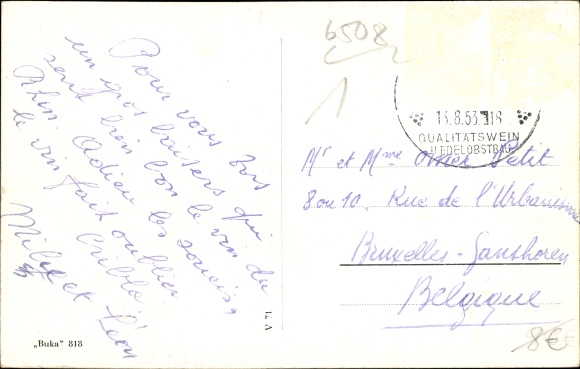 Pour vous trois
un gros baisers qui
sent bien bon le vin du
Rhin Adieu les soucis,
le vin fait oublier
Milly et Léon
6508
1
15.8.53.-18
QUALITÄTSWEIN
EDELOBSTBAU
Mr et Mme Omer Petit
8 ou 10. Rue de l'Urbanisme
Bruxelles-Ganshoren
Belgique
V 71
„Buka" 818
8€